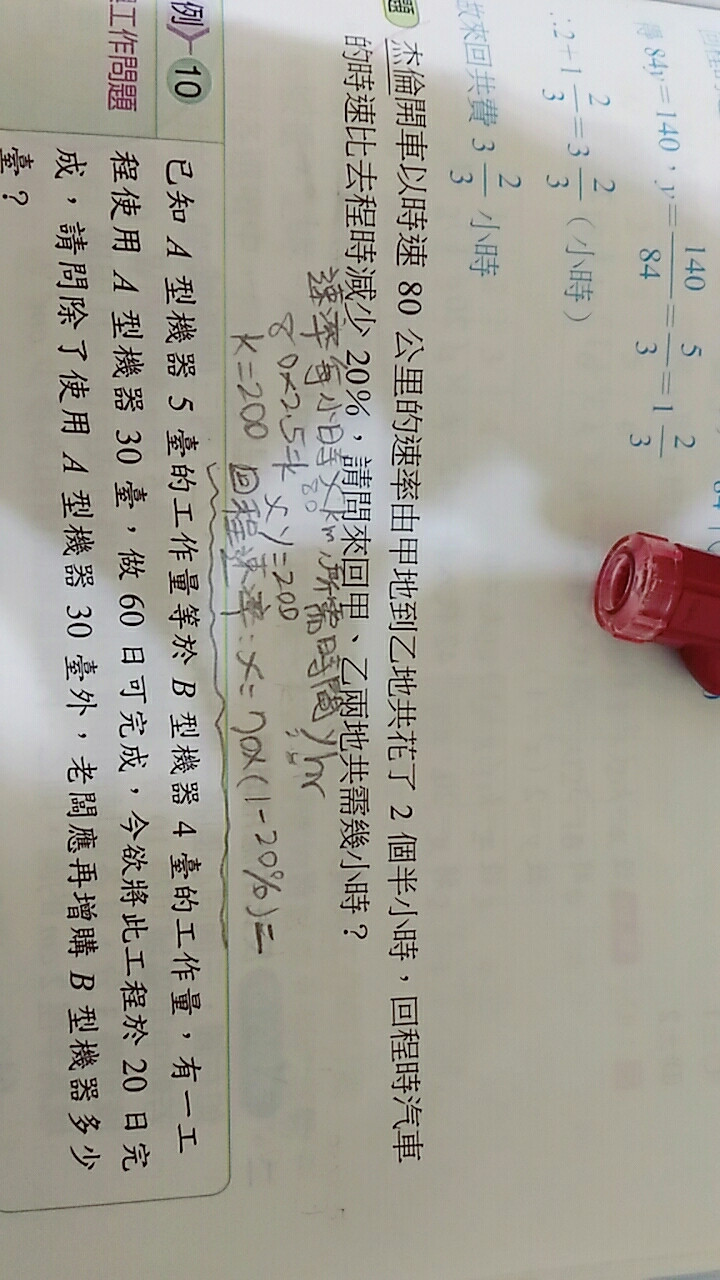 得 84y=140，y=140/84=5/3=1 2/3
∴2+1 2/3=3 2/3（小時）
故來回共費 3 2/3 小時
題
杰倫開車以時速 80 公里的速率由甲地到乙地共花了 2 個半小時，回程時汽車
的時速比去程時減少 20%，請問來回甲、乙兩地共需幾小時？
速率每小時 x km，所需時間 y hr
80×2.5=k xy=200
k=200 回程速率：x=
(1-20%)=
例 10
工作問題
已知 A 型機器 5 臺的工作量等於 B 型機器 4 臺的工作量，有一工
程使用 A 型機器 30 臺，做 60 日可完成，今欲將此工程於 20 日完
成，請問除了使用 A 型機器 30 臺外，老闆應再增購 B 型機器多少
臺？